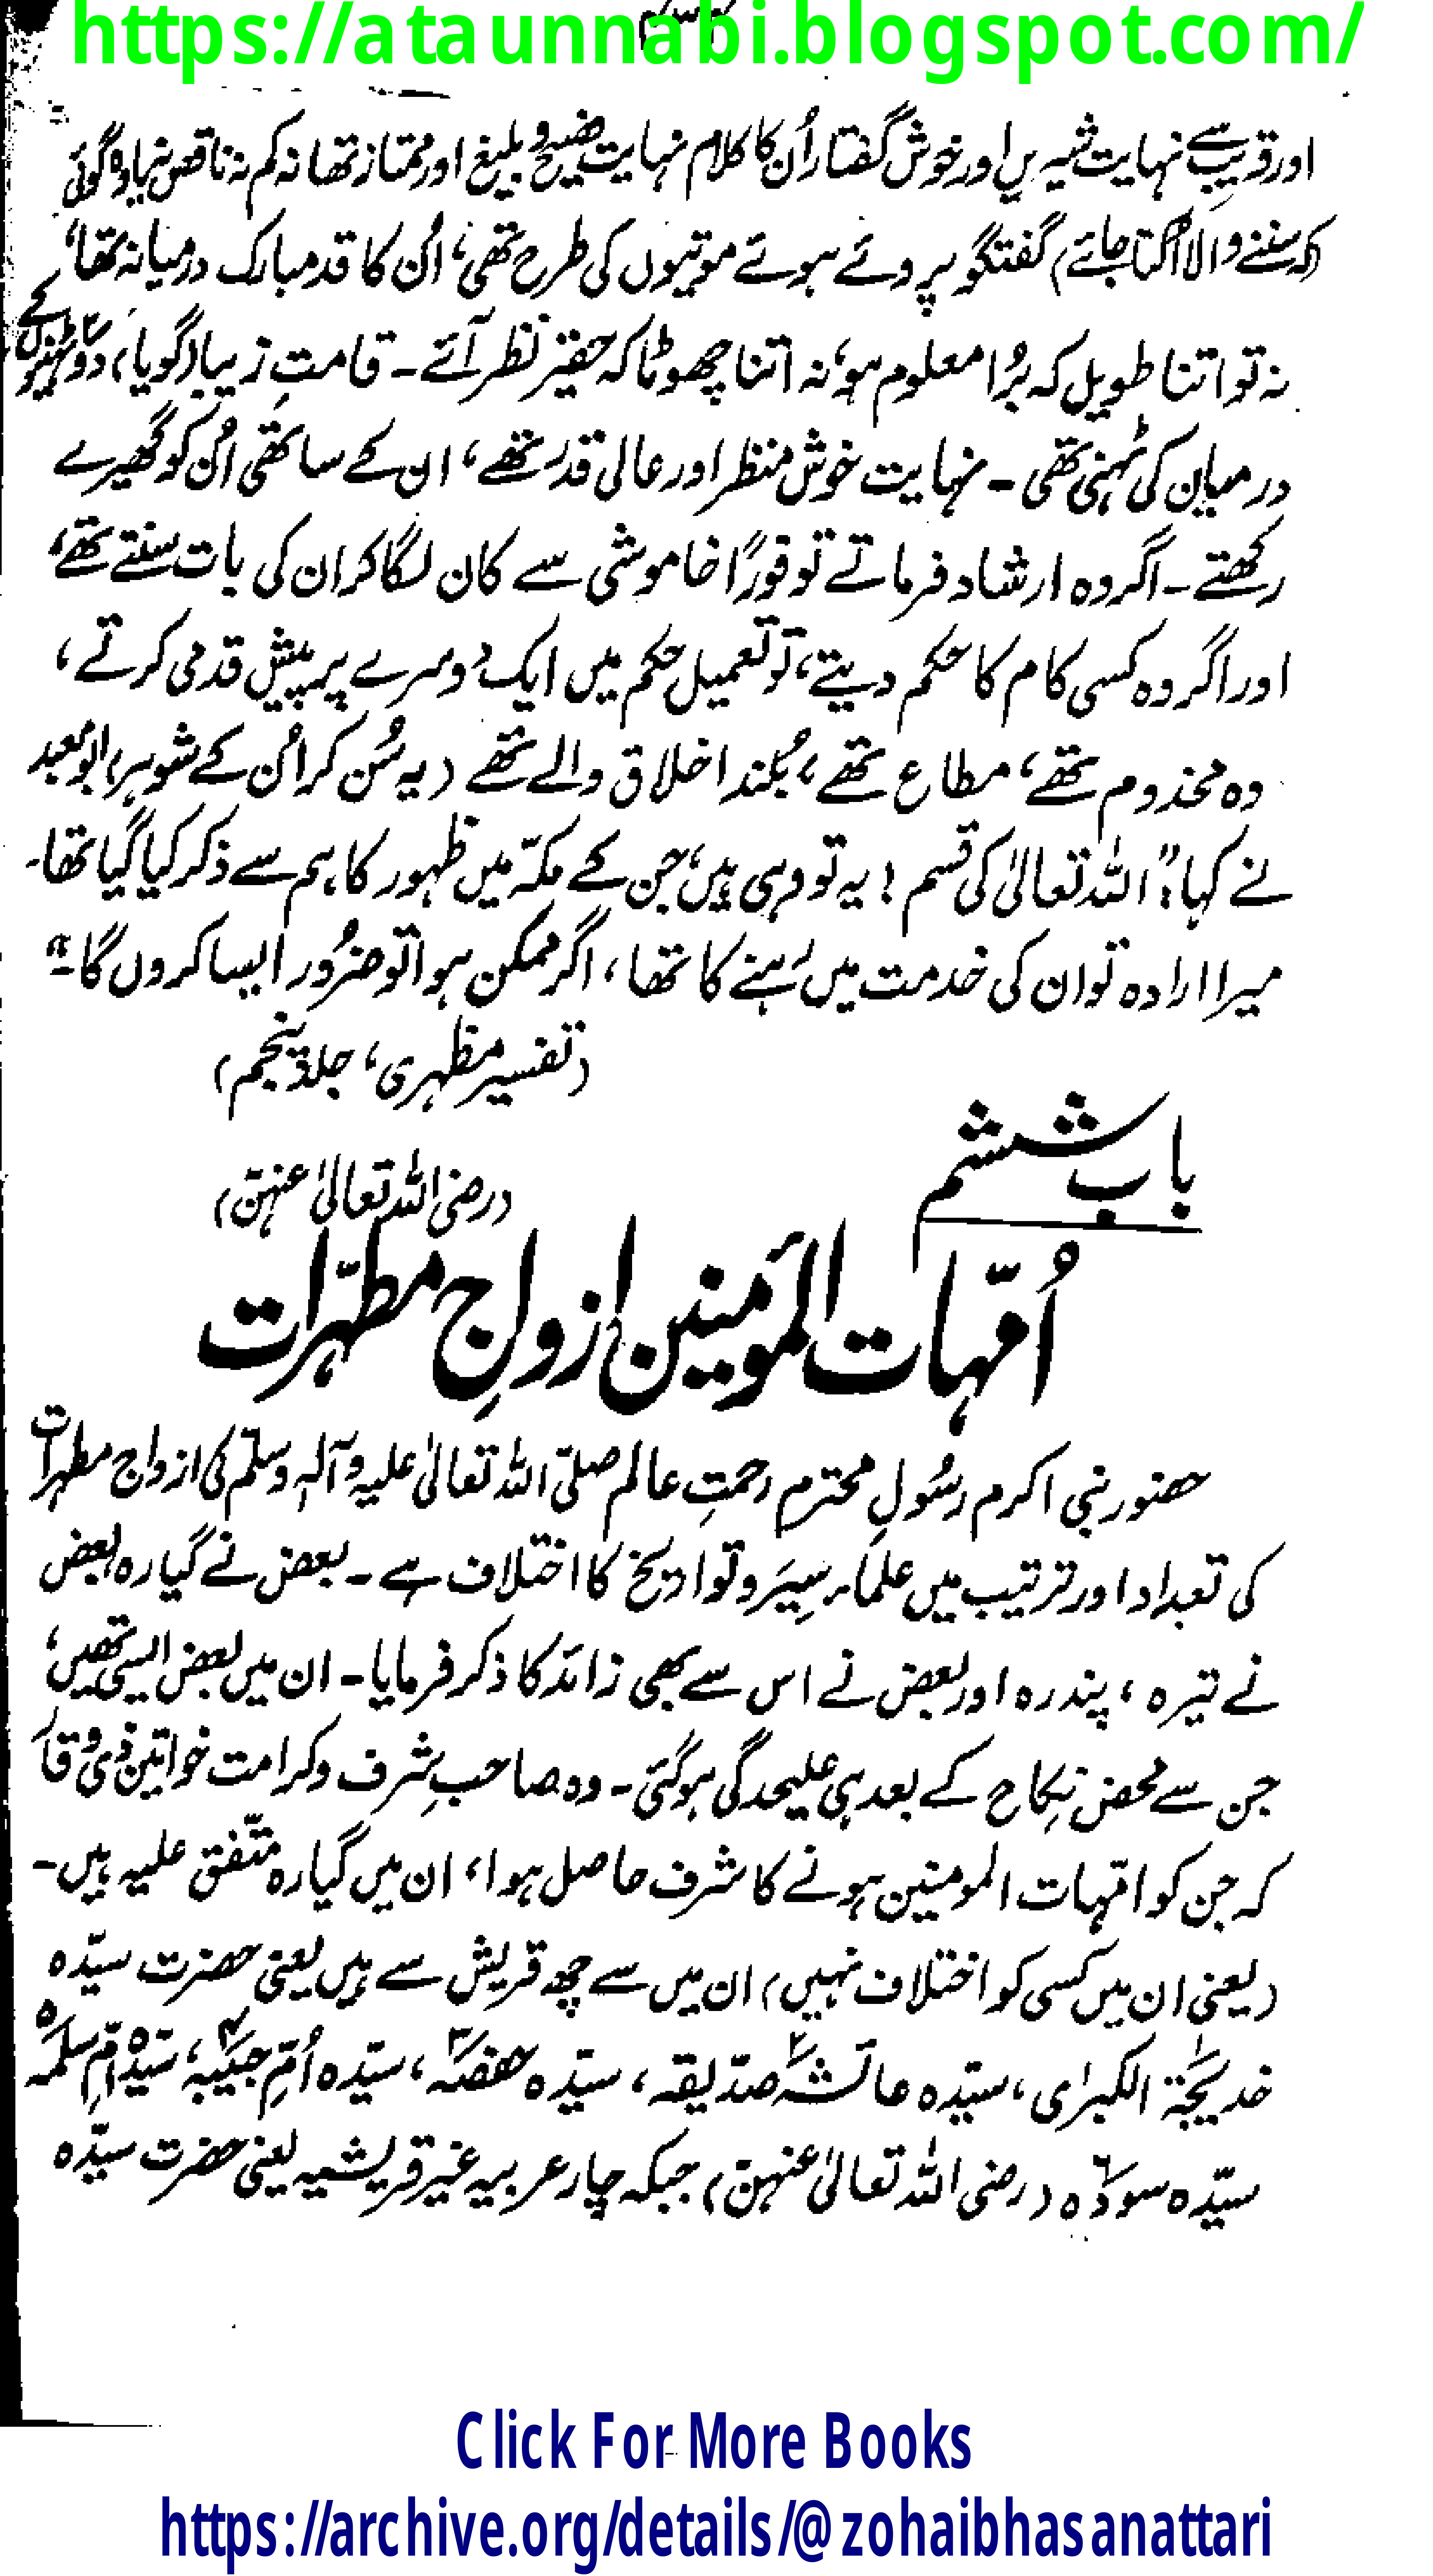 https://ataunnabi.blogspot.com/
اور قریب سے نہایت شیریں اور خوش گفتار اُن کا کلام نہایت فصیح و بلیغ اور ممتاز تھا نہ کم نہ ناقص نہ یاوہ گوئی
(کہ سننے والا اُکتا جائے) گفتگو پروئے ہوئے موتیوں کی طرح تھی، اُن کا قد مبارک درمیانہ تھا،
نہ تو اتنا طویل کہ بُرا معلوم ہو، نہ اتنا چھوٹا کہ حقیر نظر آئے۔ قامتِ زیبا (گویا) دو ٹہنیوں کے
درمیان کی ٹہنی تھی۔ نہایت خوش منظر اور عالی قدر تھے، ان کے ساتھی اُن کو گھیرے
رکھتے۔ اگر وہ ارشاد فرماتے تو فورًا خاموشی سے کان لگا کر ان کی بات سنتے تھے،
اور اگر وہ کسی کام کا حکم دیتے، تو تعمیل حکم میں ایک دوسرے پر پیش قدمی کرتے،
وہ مخدوم تھے، مطاع تھے، بُلند اخلاق والے تھے (یہ سُن کر اُن کے شوہر) ابو معبد
نے کہا: "اللہ تعالیٰ کی قسم! یہ تو وہی ہیں، جن کے مکّہ میں ظہور کا ہم سے ذکر کیا گیا تھا۔
میرا ارادہ تو ان کی خدمت میں رہنے کا تھا، اگر ممکن ہوا تو ضرُور ایسا کروں گا۔"
(تفسیر مظہری، جلد پنجم)
باب ششم
(رضی اللہ تعالیٰ عنہنّ)
اُمّہات المؤمنین ازواجِ مطہّرات
حضور نبی اکرم رسُولِ محترم رحمتِ عالم صلّی اللہ تعالیٰ علیہ وآلہٖ وسلّم کی ازواج مطہرات
کی تعداد اور ترتیب میں علماء سِیَر و تواریخ کا اختلاف ہے۔ بعض نے گیارہ، بعض
نے تیرہ، پندرہ اور بعض نے اس سے بھی زائد کا ذکر فرمایا۔ ان میں بعض ایسی تھیں،
جن سے محض نِکاح کے بعد ہی علیحدگی ہو گئی۔ وہ صاحبِ شرف و کرامت خواتین ذی وقار
کہ جن کو امّہات المومنین ہونے کا شرف حاصل ہوا، ان میں گیارہ متّفق علیہ ہیں۔
(یعنی ان میں کسی کو اختلاف نہیں) ان میں سے چھ قریش سے ہیں یعنی حضرت سیّدہ
خدیجۃ الکبرٰی، سیّدہ عائشہ صدّیقہ، سیّدہ حفصہ، سیّدہ اُمّ حبیبہ، سیّدہ اُمِّ سلمہ
سیّدہ سودہ (رضی اللہ تعالیٰ عنہنّ) جبکہ چار عربیہ غیر قریشیہ یعنی حضرت سیّدہ
Click For More Books
https://archive.org/details/@zohaibhasanattari